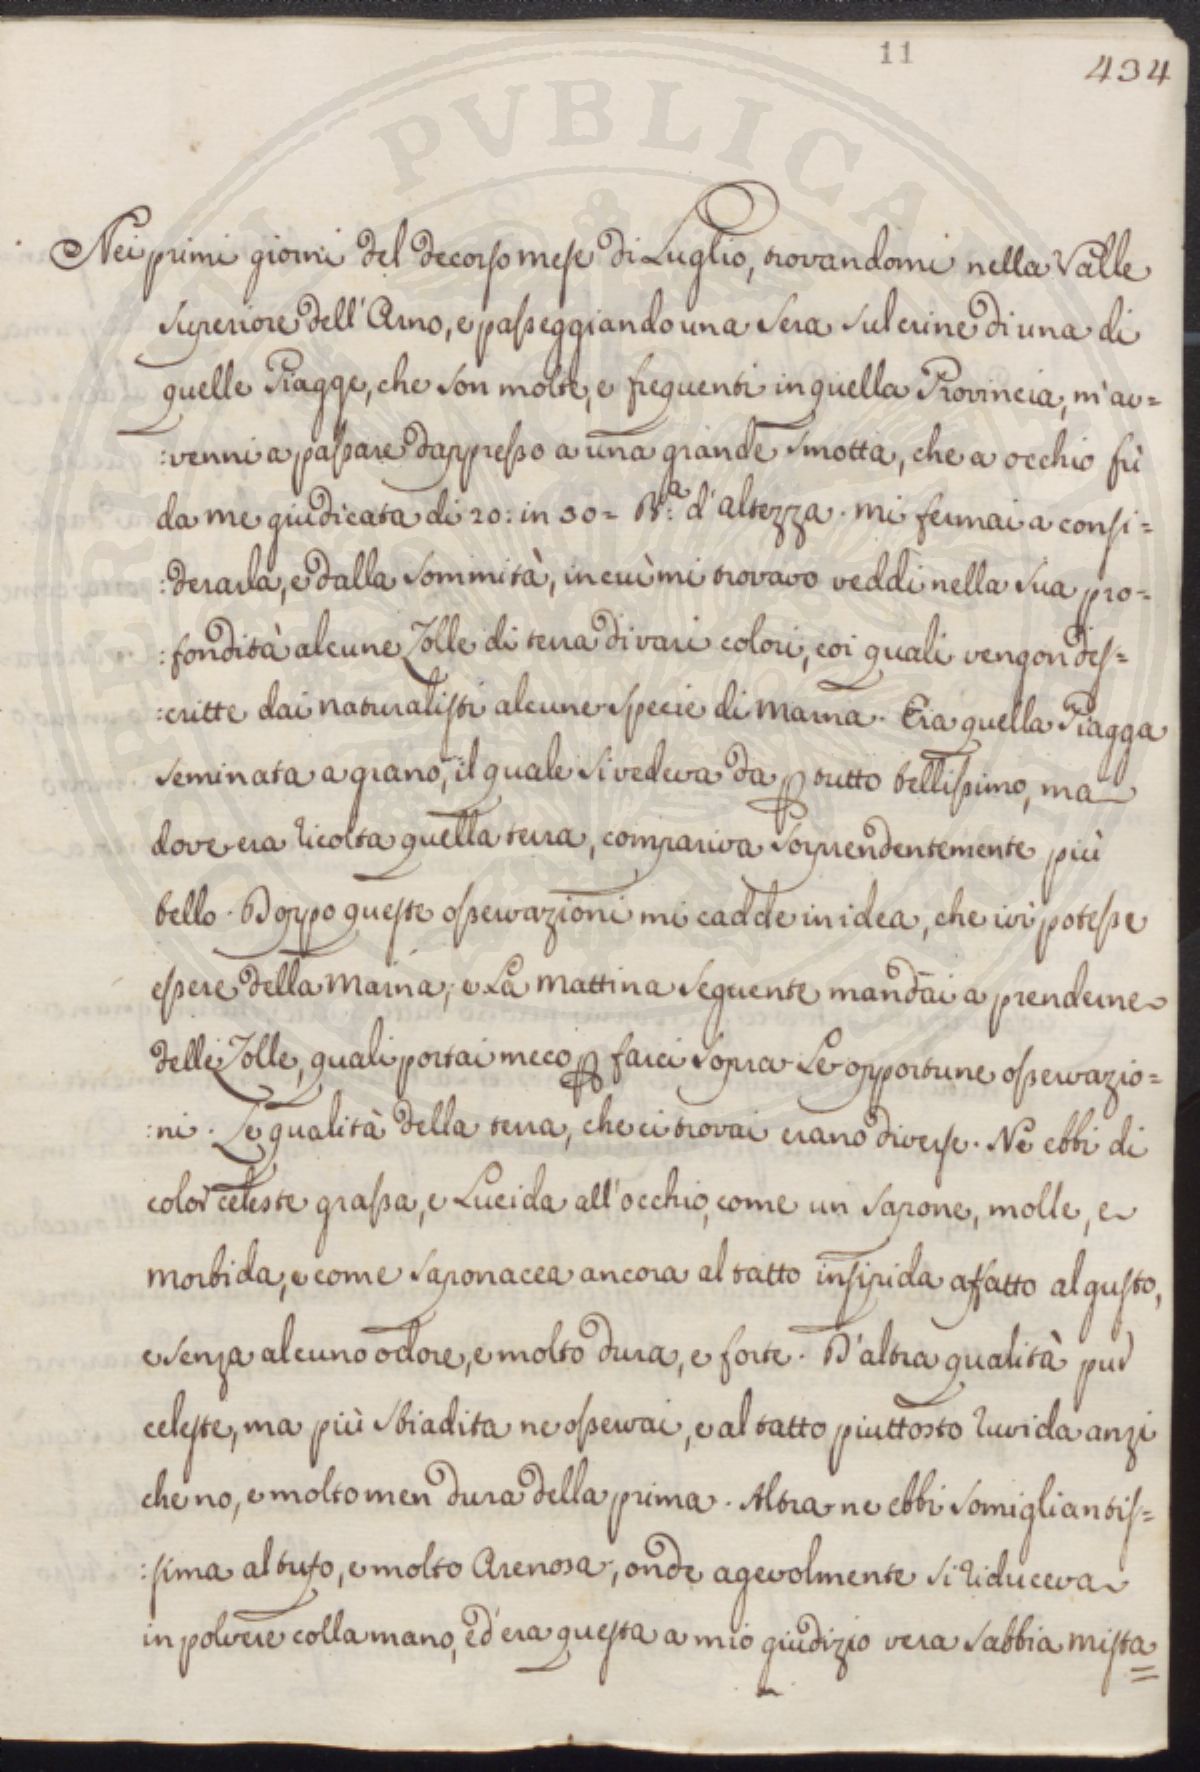 11
434
Nei primi giorni del decorso mese di Luglio, trovandomi nella Valle
Superiore dell'Arno, e passeggiando una sera sul crine di una di
quelle Piagge, che son molte, e frequenti in quella Provincia, m'av=
:venni a passare dappresso a una grande smotta, che a occhio fù
da me giudicata di 20: in 30= B.ª d'altezza. mi fermai a consi=
:derarla, e dalla sommità, in cui mi trovavo veddi nella sua pro=
:fondità alcune Zolle di terra di vari colori, coi quali vengon des=
:critte dai naturalisti alcune specie di Marna. Era quella Piagga
seminata a grano, il quale si vedeva da p tutto bellissimo, ma
dove era ricolta quella terra, compariva sorprendentemente più
bello. Doppo queste osservazioni mi cadde in idea, che ivi potesse
essere della Marna; e La mattina seguente mandai a prenderne
delle Zolle, quali portai meco p farci sopra Le opportune osservazio=
:ni. Le qualità della terra, che ci trovai erano diverse. Ne ebbi di
color celeste grassa, e Lucida all'occhio, come un sapone, molle, e
morbida, e come saponacea ancora al tatto insipida affatto al gusto,
e senza alcuno odore, e molto dura, e forte. D'altra qualità pur
celeste, ma più sbiadita ne osservai, e al tatto piuttosto ruvida anzi
che no, e molto men dura della prima. Altra ne ebbi somigliantis=
:sima al tufo, e molto Arenosa, onde agevolmente si riduceva
in polvere colla mano, ed era questa a mio giudizio vera sabbia mista
PERUSIN PUBLICA